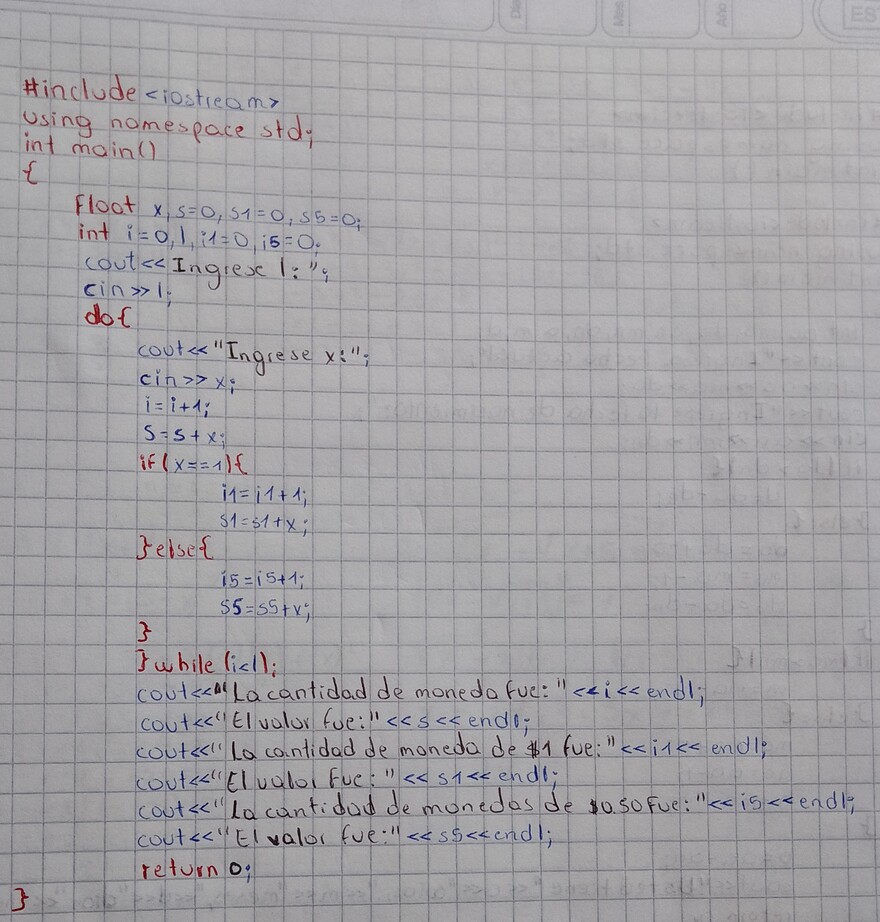 Dia
Mes
Año
ES
#include <iostream>
using namespace std;
int main()
{
float x, s=0, s1=0, s5=0;
int i=0, l, i1=0, i5=0;
cout<<Ingrese l:";
cin>>l;
do{
cout<<"Ingrese x:";
cin>>x;
i=i+1;
s=s+x;
if(x==1){
i1=i1+1;
s1=s1+x;
}else{
i5=i5+1;
s5=s5+x;
}
}while(i<l);
cout<<"La cantidad de moneda fue:"<<i<<endl;
cout<<"El valor fue:"<<s<<endl;
cout<<"La cantidad de moneda de $1 fue:"<<i1<<endl;
cout<<"El valor fue:"<<s1<<endl;
cout<<"La cantidad de monedas de $0.50 fue:"<<i5<<endl;
cout<<"El valor fue:"<<s5<<endl;
return 0;
}